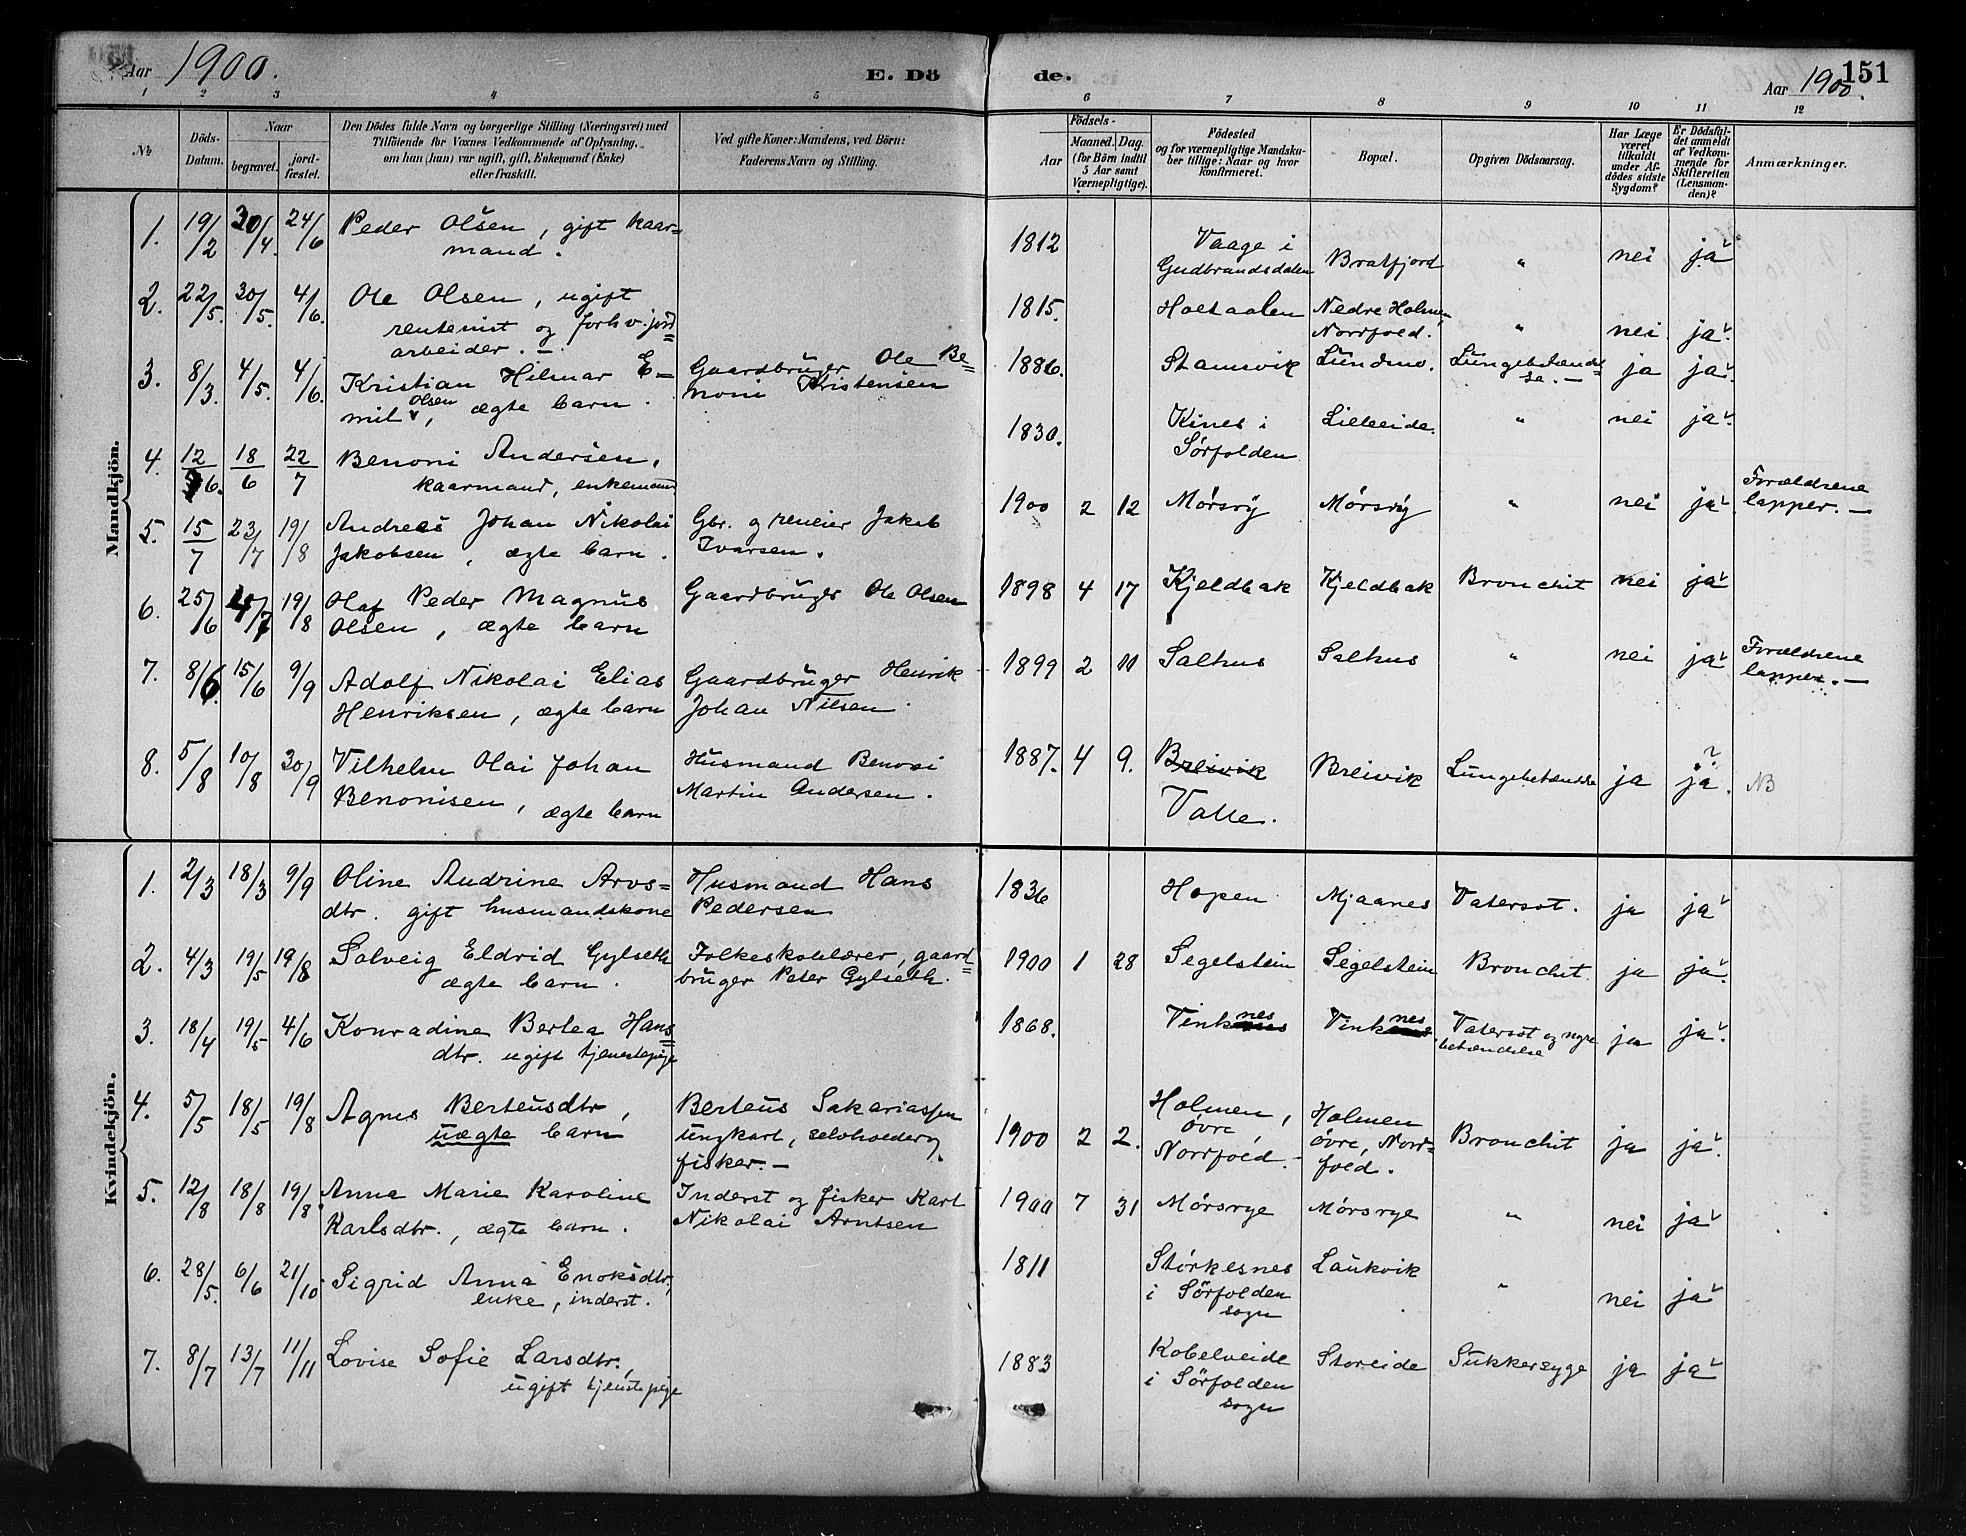 Aar 1900.
E. Dö
de.
151
Aar 1900.
1 2 3 4 5 6 7 8 9 10 11 12
№
Döds-
Datum.
Naar
begravet.
jord-
fæstet.
Den Dödes fulde Navn og borgerlige Stilling (Næringsvei) med
Tilföiende for Voxnes Vedkommende af Oplysning,
om han (hun) var ugift, gift, Enkemand (Enke)
eller fraskilt.
Ved gifte Koner: Mandens, ved Börn:
Faderens Navn og Stilling.
Födsels-
Aar
Maaned. Dag.
(for Börn indtil
5 Aar samt
Værnepligtige).
Födested
og for værnepligtige Mandska-
ber tillige: Naar og hvor
konfirmeret.
Bopæl.
Opgiven Dödsaarsag.
Har Læge
været
tilkaldt
under Af-
dödes sidste
Sygdom?
Er Dödsfal-
det anmeldt
af Vedkom-
mende for
Skifteretten
(Lensman-
den)?
Anmærkninger.
Mandkjön.
1. 19/2 30/4. 24/6 Peder Olsen, gift kaar=
mand.
1812 Vaage i
Gudbrandsdalen Bratfjord " nei ja
2. 22/5. 30/5. 4/6. Ole Olsen, ugift
rentenist og forhv. jord=
arbeider. —
1815. Holtaalen Nedre Holmen,
Norrfold. " nei ja
3. 8/3. 4/5. 4/6. Kristian Hilmar E=
mil Olsen, ægte barn.
Gaardbruger Ole Be=
noni Kristensen
1886. Stamsvik Lundmo. Lungebetændel=
se. — ja ja.
4. 12/6. 18/6 22/7 Benoni Andersen,
kaarmand, enkemand
1830. Kines i
Sørfolden Lilleeide. " nei ja.
5. 15/7 23/7 19/8 Andreas Johan Nikolai
Jakobsen, ægte barn.
Gbr. og reneier Jakob
Ivarsen.
1900 2 12 Mørsvy Mørsvy " nei ja Forældrene
lapper. —
6. 25/6 /7 19/8 Olaf Peder Magnus
Olsen, ægte barn
Gaardbruger Ole Olsen
1898 4 17 Kjeldbak Kjeldbak Bronchit nei ja
7. 8/6. 15/6 9/9 Adolf Nikolai Elias
Henriksen, ægte barn
Gaardbruger Henrik
Johan Nilsen.
1899 2 11 Salhus Salhus " nei ja Forældrene
lapper. —
8. 5/8 10/8 30/9 Vilhelm Olai Johan
Benonisen, ægte barn
Husmand Benoni
Martin Andersen.
1887. 4 9. Breivik
Valle. Breivik Lungebetændelse ja ja. NB
Kvindekjön.
1. 2/3 18/3 9/9 Oline Andrine Aros=
dtr. gift husmandskone
Husmand Hans
Pedersen
1836 Hopen Mjaanes Vatersot. ja ja
2. 4/3 19/5 19/8 Solveig Eldrid Gylseth
ægte barn.
Folkeskolelærer, gaard=
bruger Peter Gylseth.
1900 1 28 Segelstein Segelstein Bronchit ja ja.
3. 18/4 19/5 4/6 Konradine Bertea Hans=
dtr. ugift tjenestepige
1868. Vinknes Vinknes Vatersot og nyre
betændelse ja ja.
4. 5/5 18/5 19/8 Agnes Berteusdtr,
uægte barn
Berteus Sakariassen
ungkarl, selvholden og
fisker. —
1900 2 2. Holmen,
øvre,
Norrfold. — Holmen
øvre, Norr=
fold. Bronchit ja ja.
5. 12/8 18/8 19/8. Anna Marie Karoline
Karlsdtr., ægte barn.
Inderst og fisker Karl
Nikolai Arntsen
1900 7 31 Mørsvye Mørsvye " nei ja
6. 28/5. 6/6 21/10 Sigrid Anna Enoksdtr,
enke, inderst.
1811 Størkesnes
i Sørfolden
sogn Laukvik " nei ja
7. 8/7 13/7 11/11 Lovise Sofie Larsdtr.,
ugift tjenstepige
1883 Kobelveide
i Sørfolden
sogn Storeide Sukkersyge ja ja